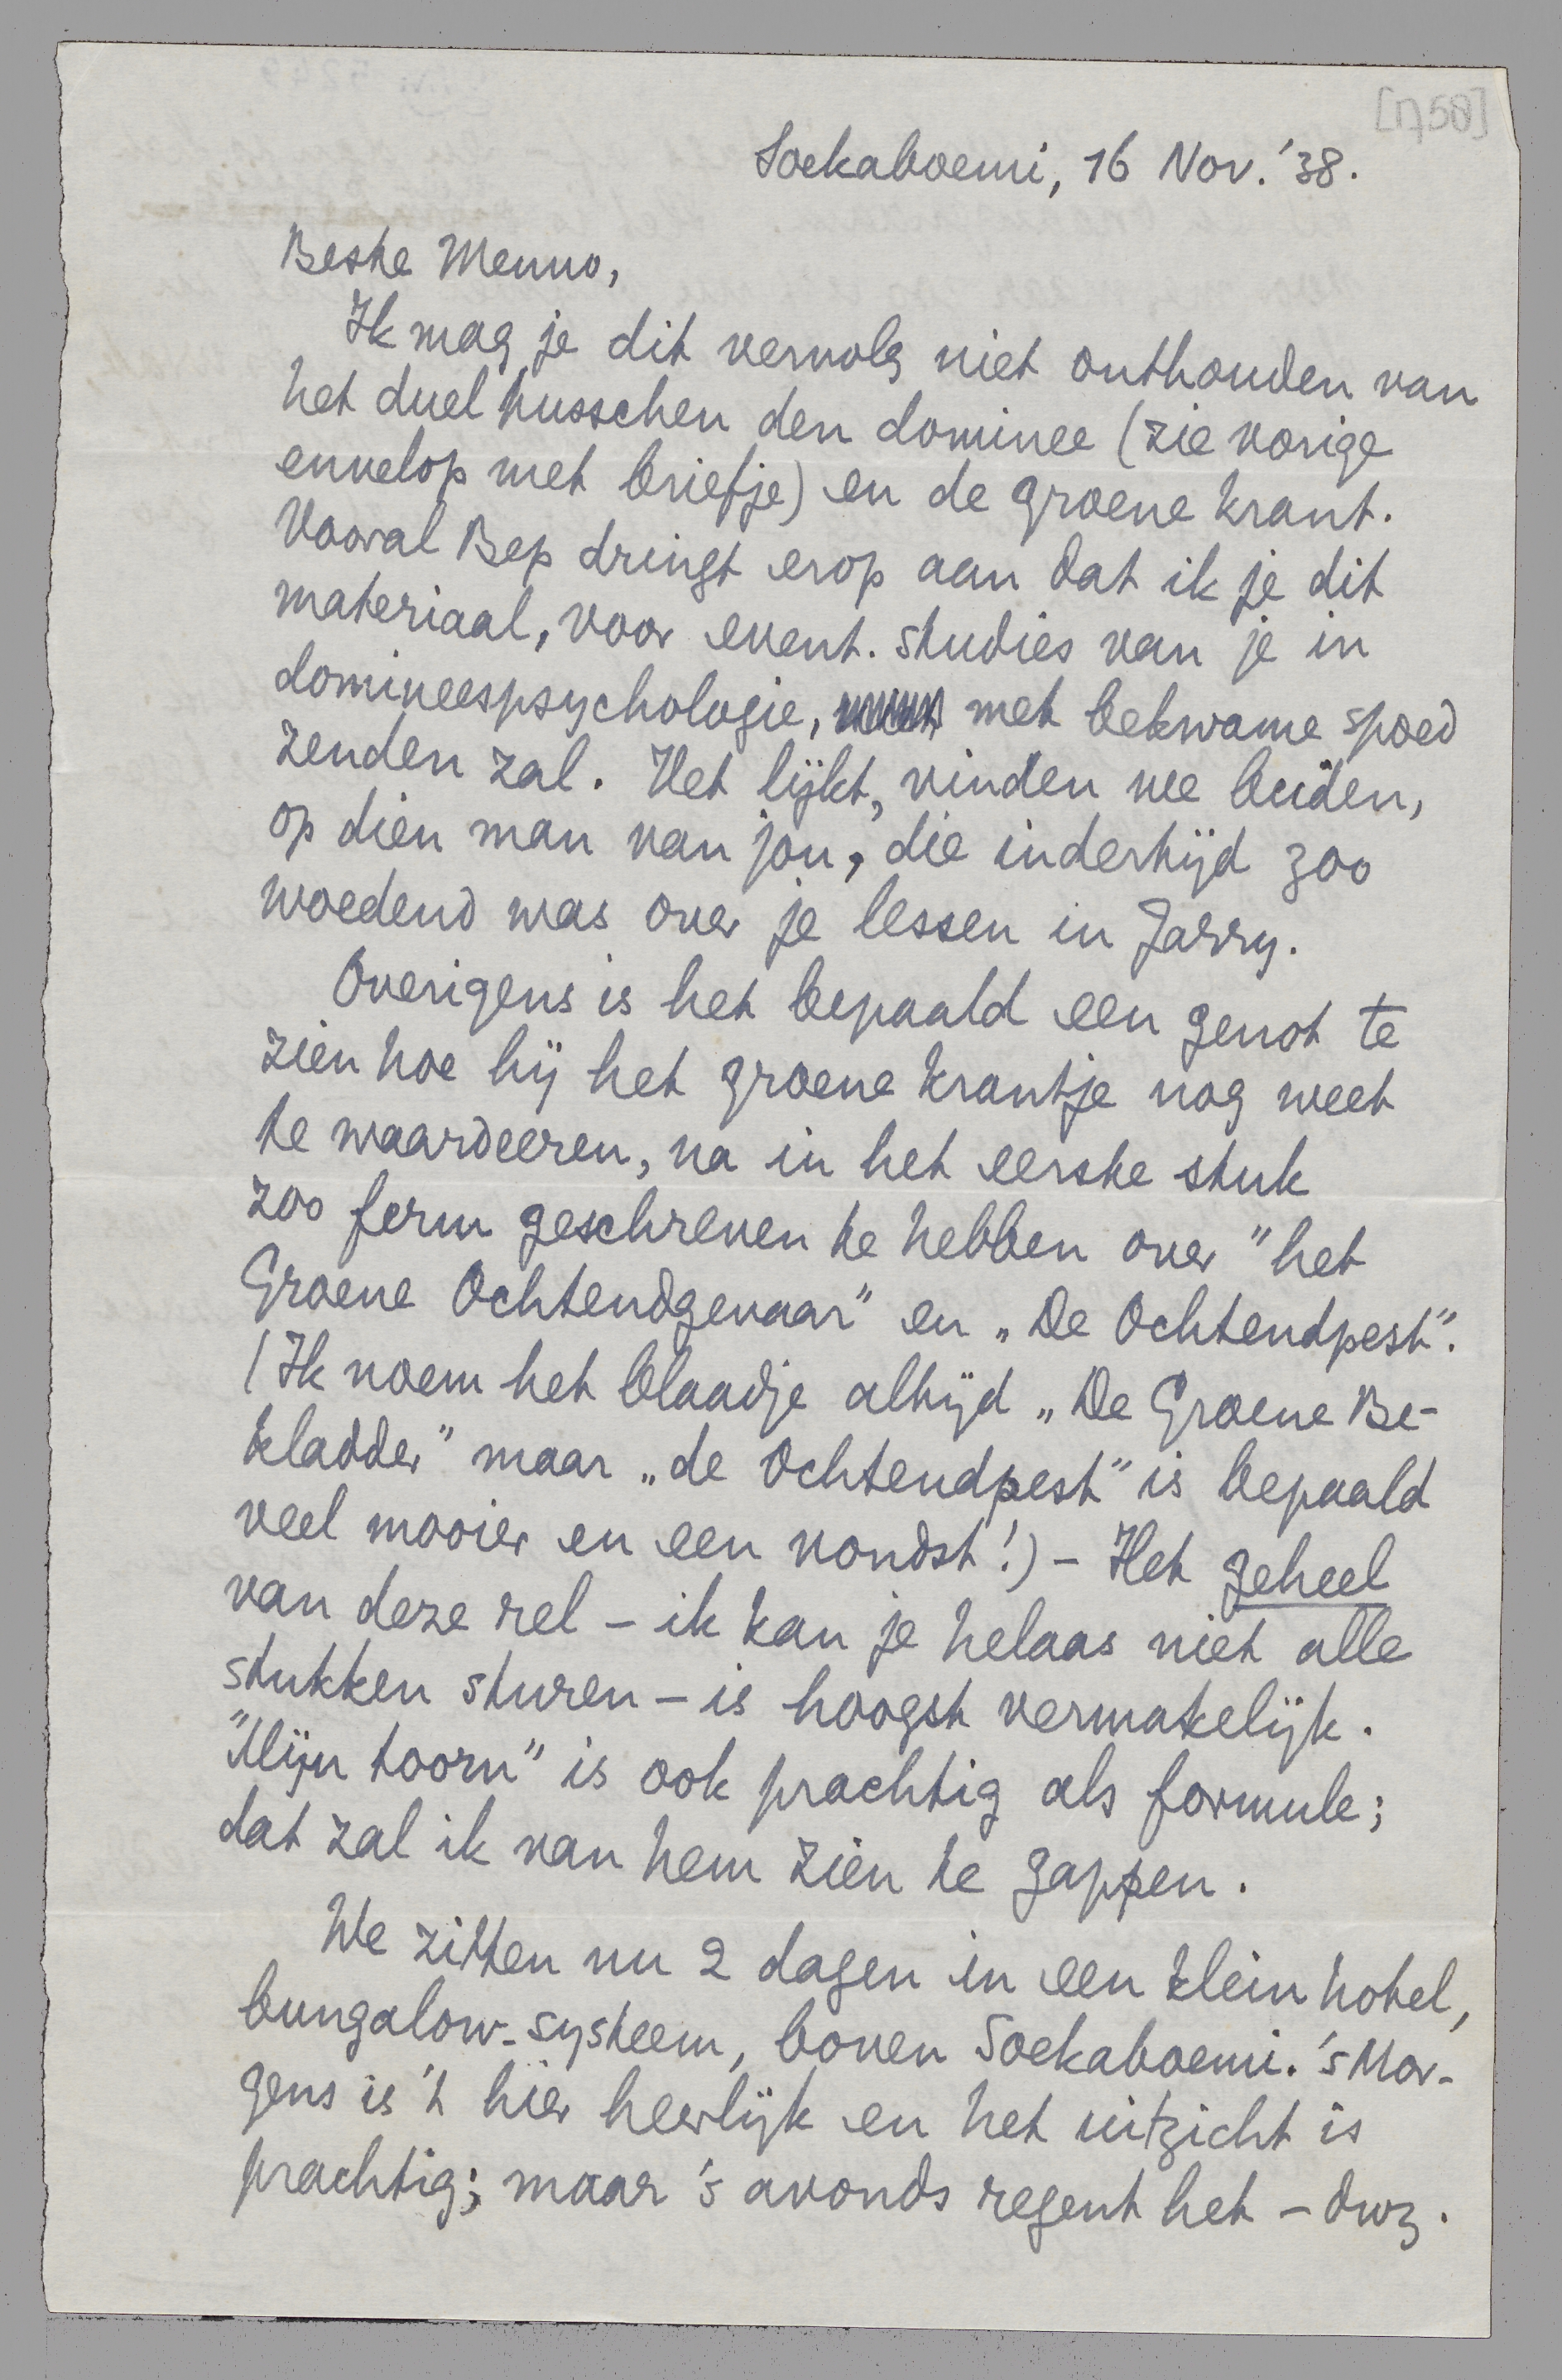 [1758]
Soekaboemi, 16 Nov. '38.
Beste Menno,
Ik mag je dit vervolg niet onthouden van
het duel tusschen den dominee (zie vorige
envelop met briefje) en de groene krant.
Vooral Bep dringt erop aan dat ik je dit
materiaal, voor event. studies van je in
domineespsychologie, met bekwame spoed
zenden zal. Het lijkt, vinden we beiden,
op dien man van jou, die indertijd zoo
woedend was over je lessen in Jarry.
Overigens is het bepaald een genot te
zien hoe hij het groene krantje nog weet
te waardeeren, na in het eerste stuk
zoo ferm geschreven te hebben over "het
Groene Ochtendgevaar" en „De Ochtendpest".
(Ik noem het blaadje altijd „De Groene Be-
kladder" maar „de Ochtendpest" is bepaald
veel mooier en een vondst!) – Het geheel
van deze rel – ik kan je helaas niet alle
stukken sturen – is hoogst vermakelijk.
"Mijn toorn" is ook prachtig als formule;
dat zal ik van hem zien te gappen.
We zitten nu 2 dagen in een klein hotel,
bungalow-systeem, boven Soekaboemi. 's Mor-
gens is 't hier heerlijk en het uitzicht is
prachtig; maar 's avonds regent het – dwz.